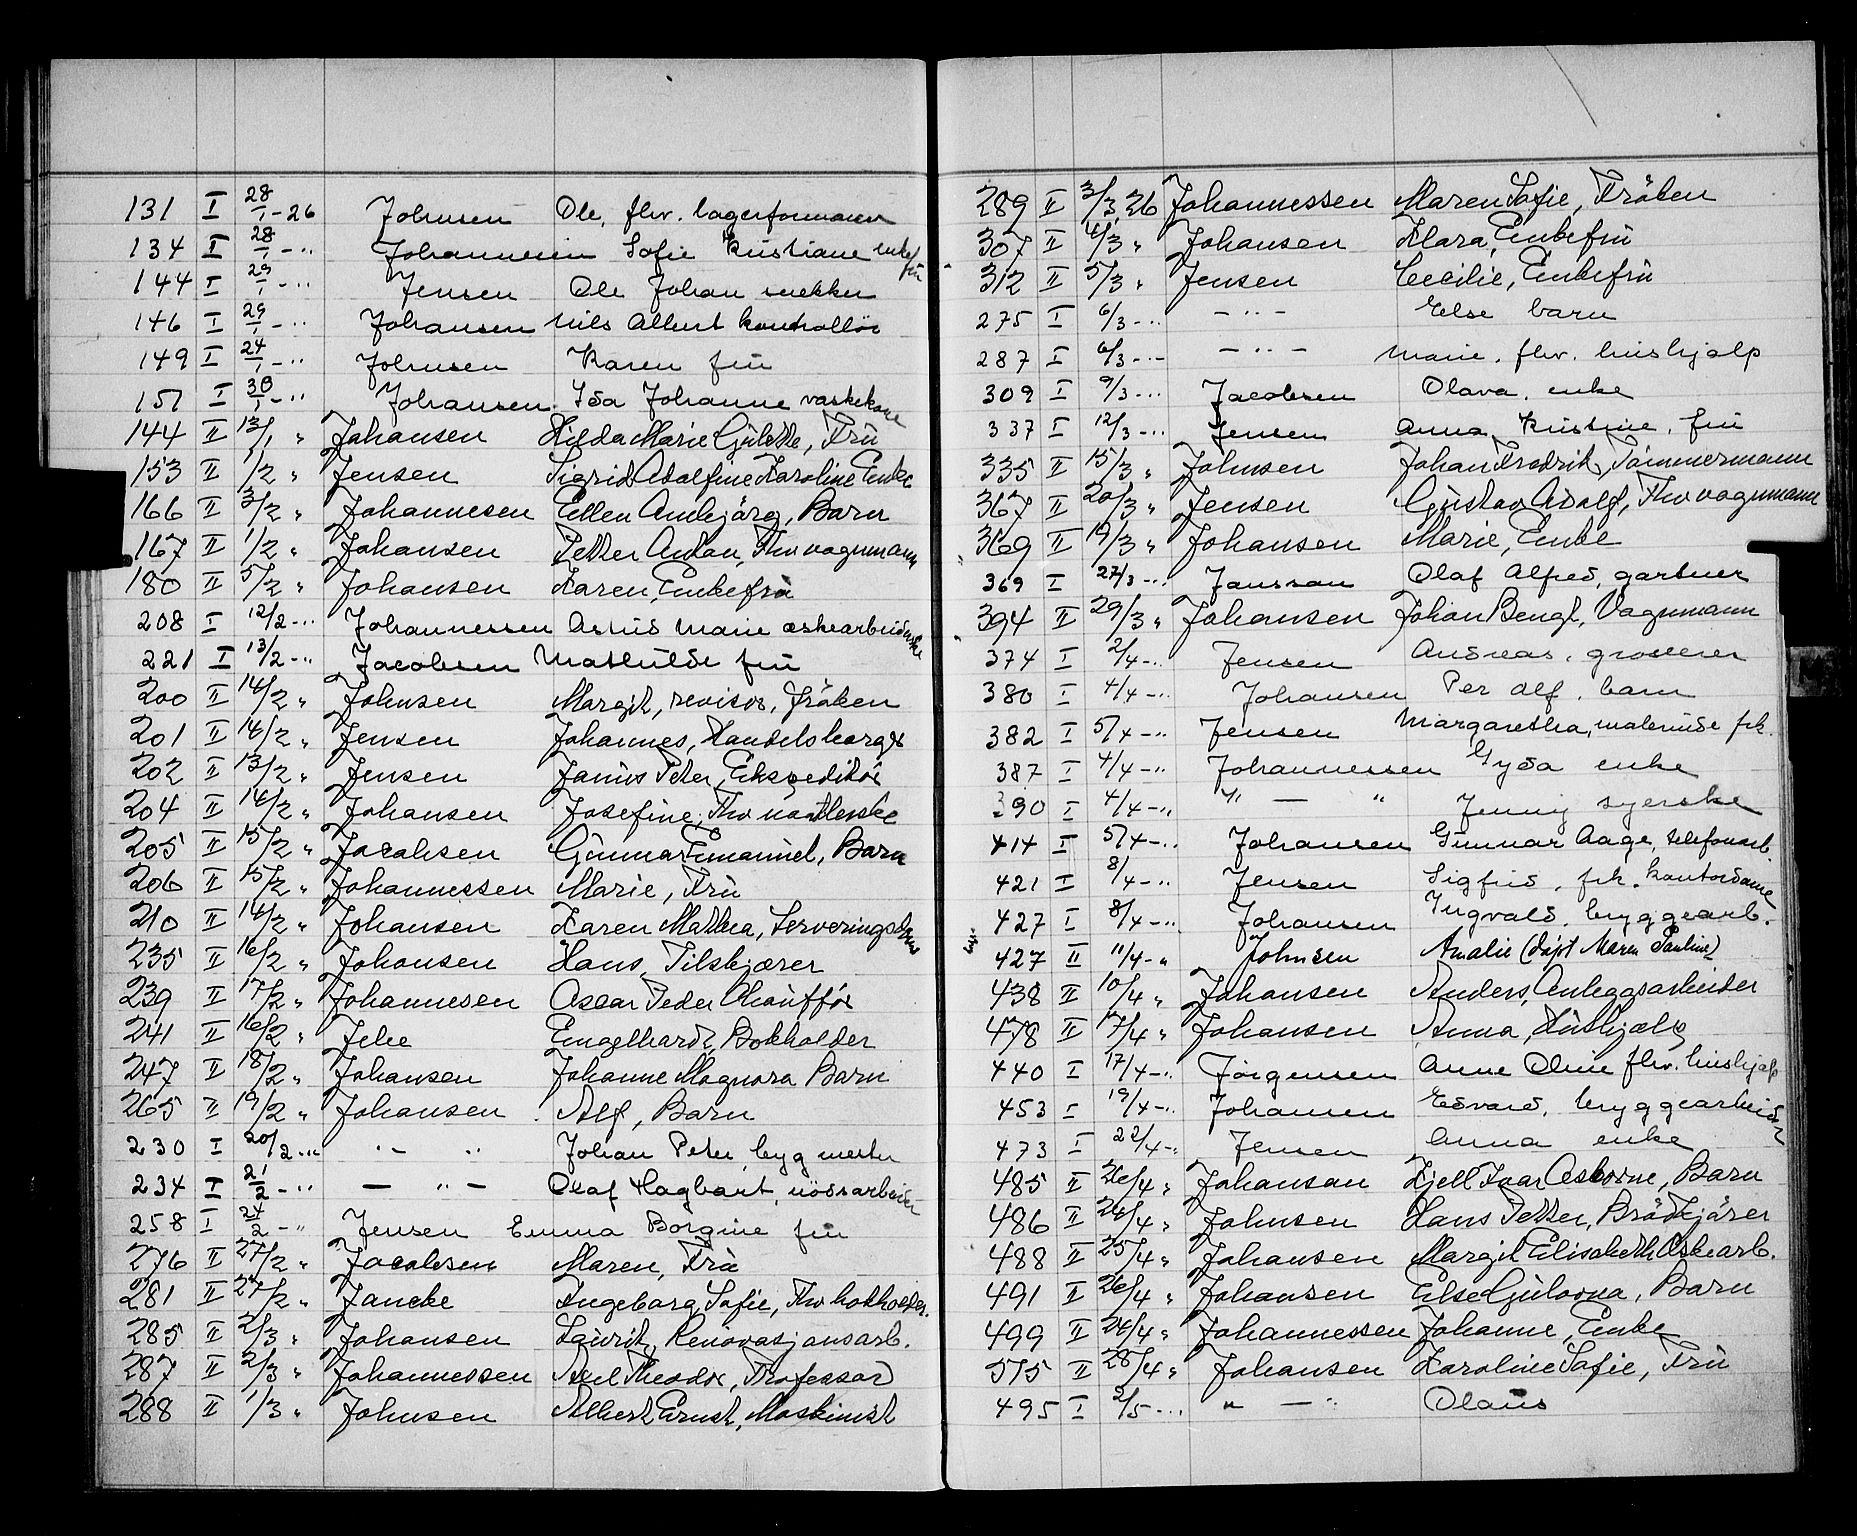 131 I 28/1-26 Johnsen Ole, fhv. lagerformann
134 I 28/1-" Johannesen Sofie Kristiane enkefru
144 I 29/1-" Jensen Ole Johan snekker
146 I 29/1-" Johansen Nils Albert kontrollör
149 I 24/1-" Johnsen Karen fru
151 I 30/1-" Johansen Ida Johanne vaskekone
144 II 13/1 " Johansen Hilda Marie Gulette, Fru
153 II 1/2 " Jensen Sigrid Adolfine Karoline Enke
166 II 3/2 " Johannesen Ellen Annbjörg, Barn
167 II 1/2 " Johansen Petter Anton, Fhv vognmann
180 II 5/2 " Johansen Karen, Enkefru
208 I 12/2-" Johannessen Astrid Marie eskearbeiderske
221 I 13/2-" Jacobsen Mathilde fru
200 II 14/2 " Johnsen Margit, revisor, Fröken
201 II 14/2 " Jensen Johannes, Handelsborger
202 II 13/2 " Jensen Janus Peter, Ekspeditör
204 II 14/2 " Johansen Josefine, Fhv naatlerske
205 II 15/2 " Jacobsen Gunnar Emanuel, Barn
206 II 15/2 " Johannessen Marie, Fru
210 II 14/2 " Johansen Karen Mathea, Serveringsdame
235 II 16/2 " Johansen Hans, Tilskjærer
239 II 17/2 " Johannesen Oscar Peder Chaufför
241 II 16/2 " Jebe Engelhardt, Bokholder
247 II 18/2 " Johansen Johanne Magnora Barn
265 II 19/2 " Johansen Alf, Barn
230 I 20/2-" "- " Johan Peter, bygmester
234 I 21/2-" - " - Olaf Hagbart, nödsarbeider
258 I 24/2-" Jensen Emma Borgine fru
276 II 27/2 " Jacobsen Maren, Fru
281 II 27/2 " Jancke Ingeborg Sofie, Fhv bokholder.
285 II 2/3 " Johansen Lauritz, Renovasjonsarb.
287 II 2/3 " Johannessen Axel Theodor, Professor
288 II 1/3 " Johnsen Albert Ernst, Maskinist
289 II 3/3 26 Johannessen Maren Sofie, Fröken
307 II 4/3 " Johansen Klara, Enkefru
312 II 5/3 " Jensen Cecilie, Enkefru
275 I 6/3-" - " - Else barn
287 I 6/3-" - " - Marie. fhv. hushjelp
309 I 9/3-" Jacobsen Olava. enke
337 I 12/3-" Jensen Anna Kristine. fru
335 II 15/3 " Johnsen Johan Fredrik, Tömmermann
367 II 20/3 " Jensen Gustav Adolf, Fhv vognmann
369 II 19/3 " Johansen Marie, Enke
369 I 27/3-" Janssan Olaf Alfred, gartner
394 II 29/3 " Johansen Johan Bengt, Vognmann
374 I 2/4-" Jensen Andreas, grosserer
380 I 4/4-" Johansen Per Alf. barn
382 I 5/4-" Jensen Margaretha, malerinde frk.
387 I 4/4-" Johannessen Gyda enke
390 I 4/4-" " - " Jenny syerske
414 I 5/4-" Johansen Gunnar Aage, telefonarb.
421 I 8/4-" Jensen Sigfrid, frk. kontordame
427 I 8/4-" Johansen Ingvald. bryggearb.
427 II 11/4-" Johnsen Amalie (döpt Maren Pauline)
438 II 10/4 " Johansen Anders, Anleggsarbeider
478 II 17/4 " Johansen Anna, Hushjælp
440 I 17/4-" Jörgensen Anne Oline fhv. hushjelp
453 I 19/4-" Johansen Edvard, bryggearbeider
473 I 22/4-" Jensen Anna enke
485 II 26/4 " Johansan Kjell Ivar Asborne, Barn
486 II 24/4 " Johnsen Hans Petter, Brödkjörer
488 II 25/4 " Johansen Margit Elisabeth Eskearb.
491 II 26/4 " Johansen Else Gulovna, Barn
499 II 24/4 " Johannessen Johanne, Enke
515 II 28/4 " Johansen Karoline Sofie, Fru
495 I 2/5-" " - " Olaus